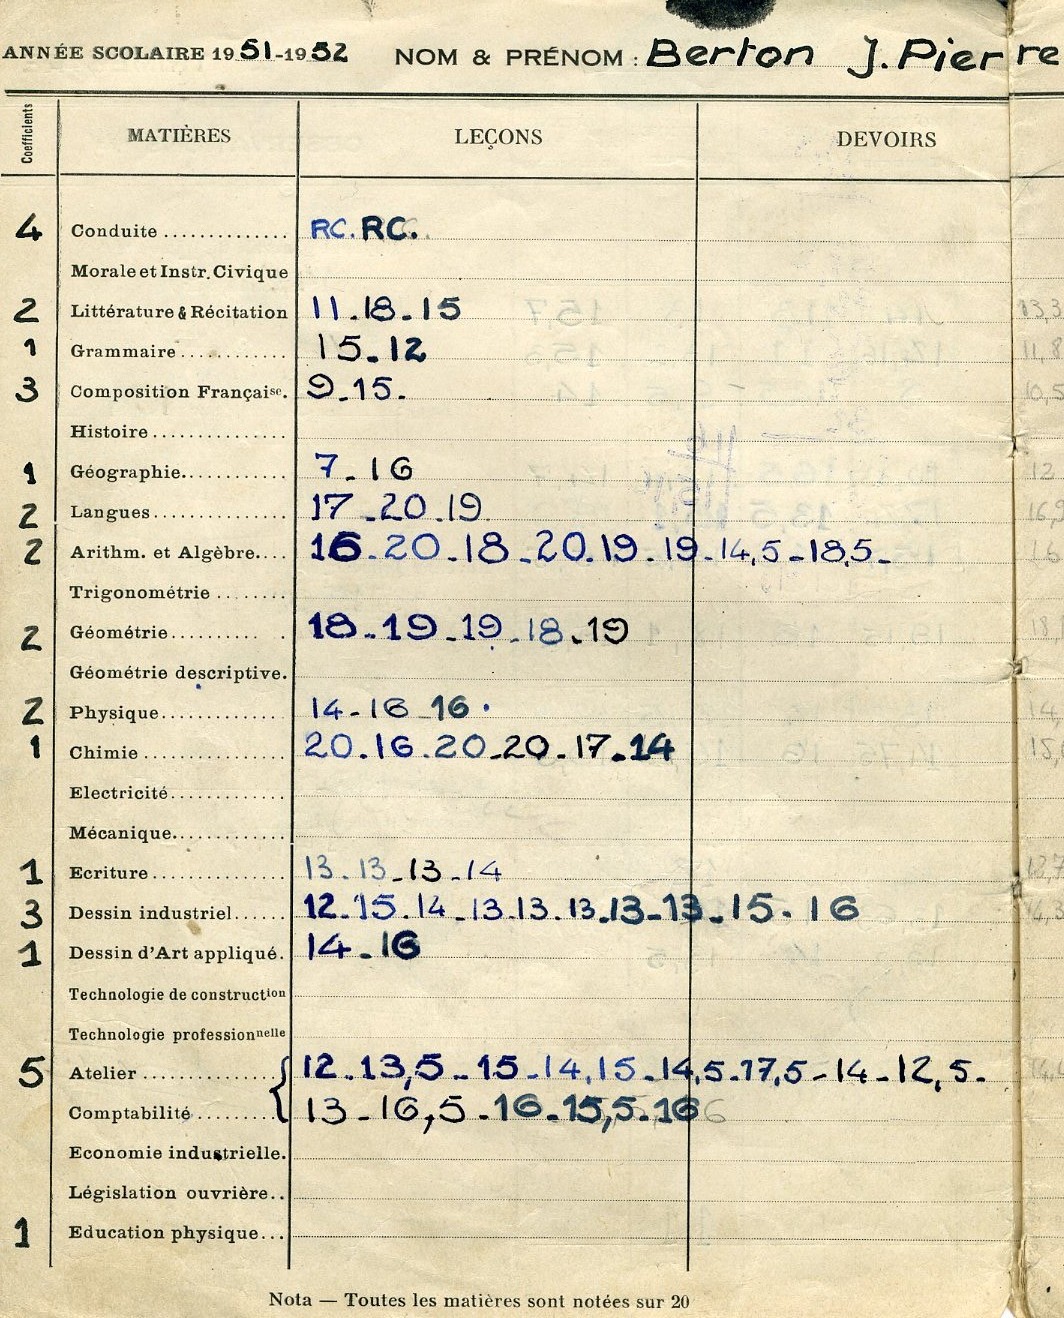 ANNÉE SCOLAIRE 1951-1952 NOM & PRÉNOM : Berton J. Pierre
Coefficients MATIÈRES LEÇONS DEVOIRS
4 Conduite .............. RC. RC.
Morale et Instr. Civique
2 Littérature & Récitation 11.18.15 13,3
1 Grammaire ............ 15.12 11,8
3 Composition Française. 9.15. 10,5
Histoire ..............
1 Géographie........... 7.16 12
2 Langues.............. 17.20.19 16,9
2 Arithm. et Algèbre.... 16.20.18.20.19.19.14,5.18,5. 16
Trigonométrie ........
2 Géométrie......... . 18.19.19.18.19 18,
Géométrie descriptive.
2 Physique............. 14-16 16. 14,
1 Chimie .............. 20.16.20.20.17.14 15,
Electricité.............
Mécanique............
1 Ecriture .............. 13.13.13.14 13,7
3 Dessin industriel...... 12.15.14.13.13.13.13-13.15.16 14,3
1 Dessin d'Art appliqué. 14.16
Technologie de construction
Technologie professionnelle
5 Atelier .............. 12.13,5.15.14,15.14,5.17,5-14-12,5.
Comptabilité ........ 13-16,5.16.15,5.16
Economie industrielle.
Législation ouvrière..
1 Education physique...
Nota — Toutes les matières sont notées sur 20